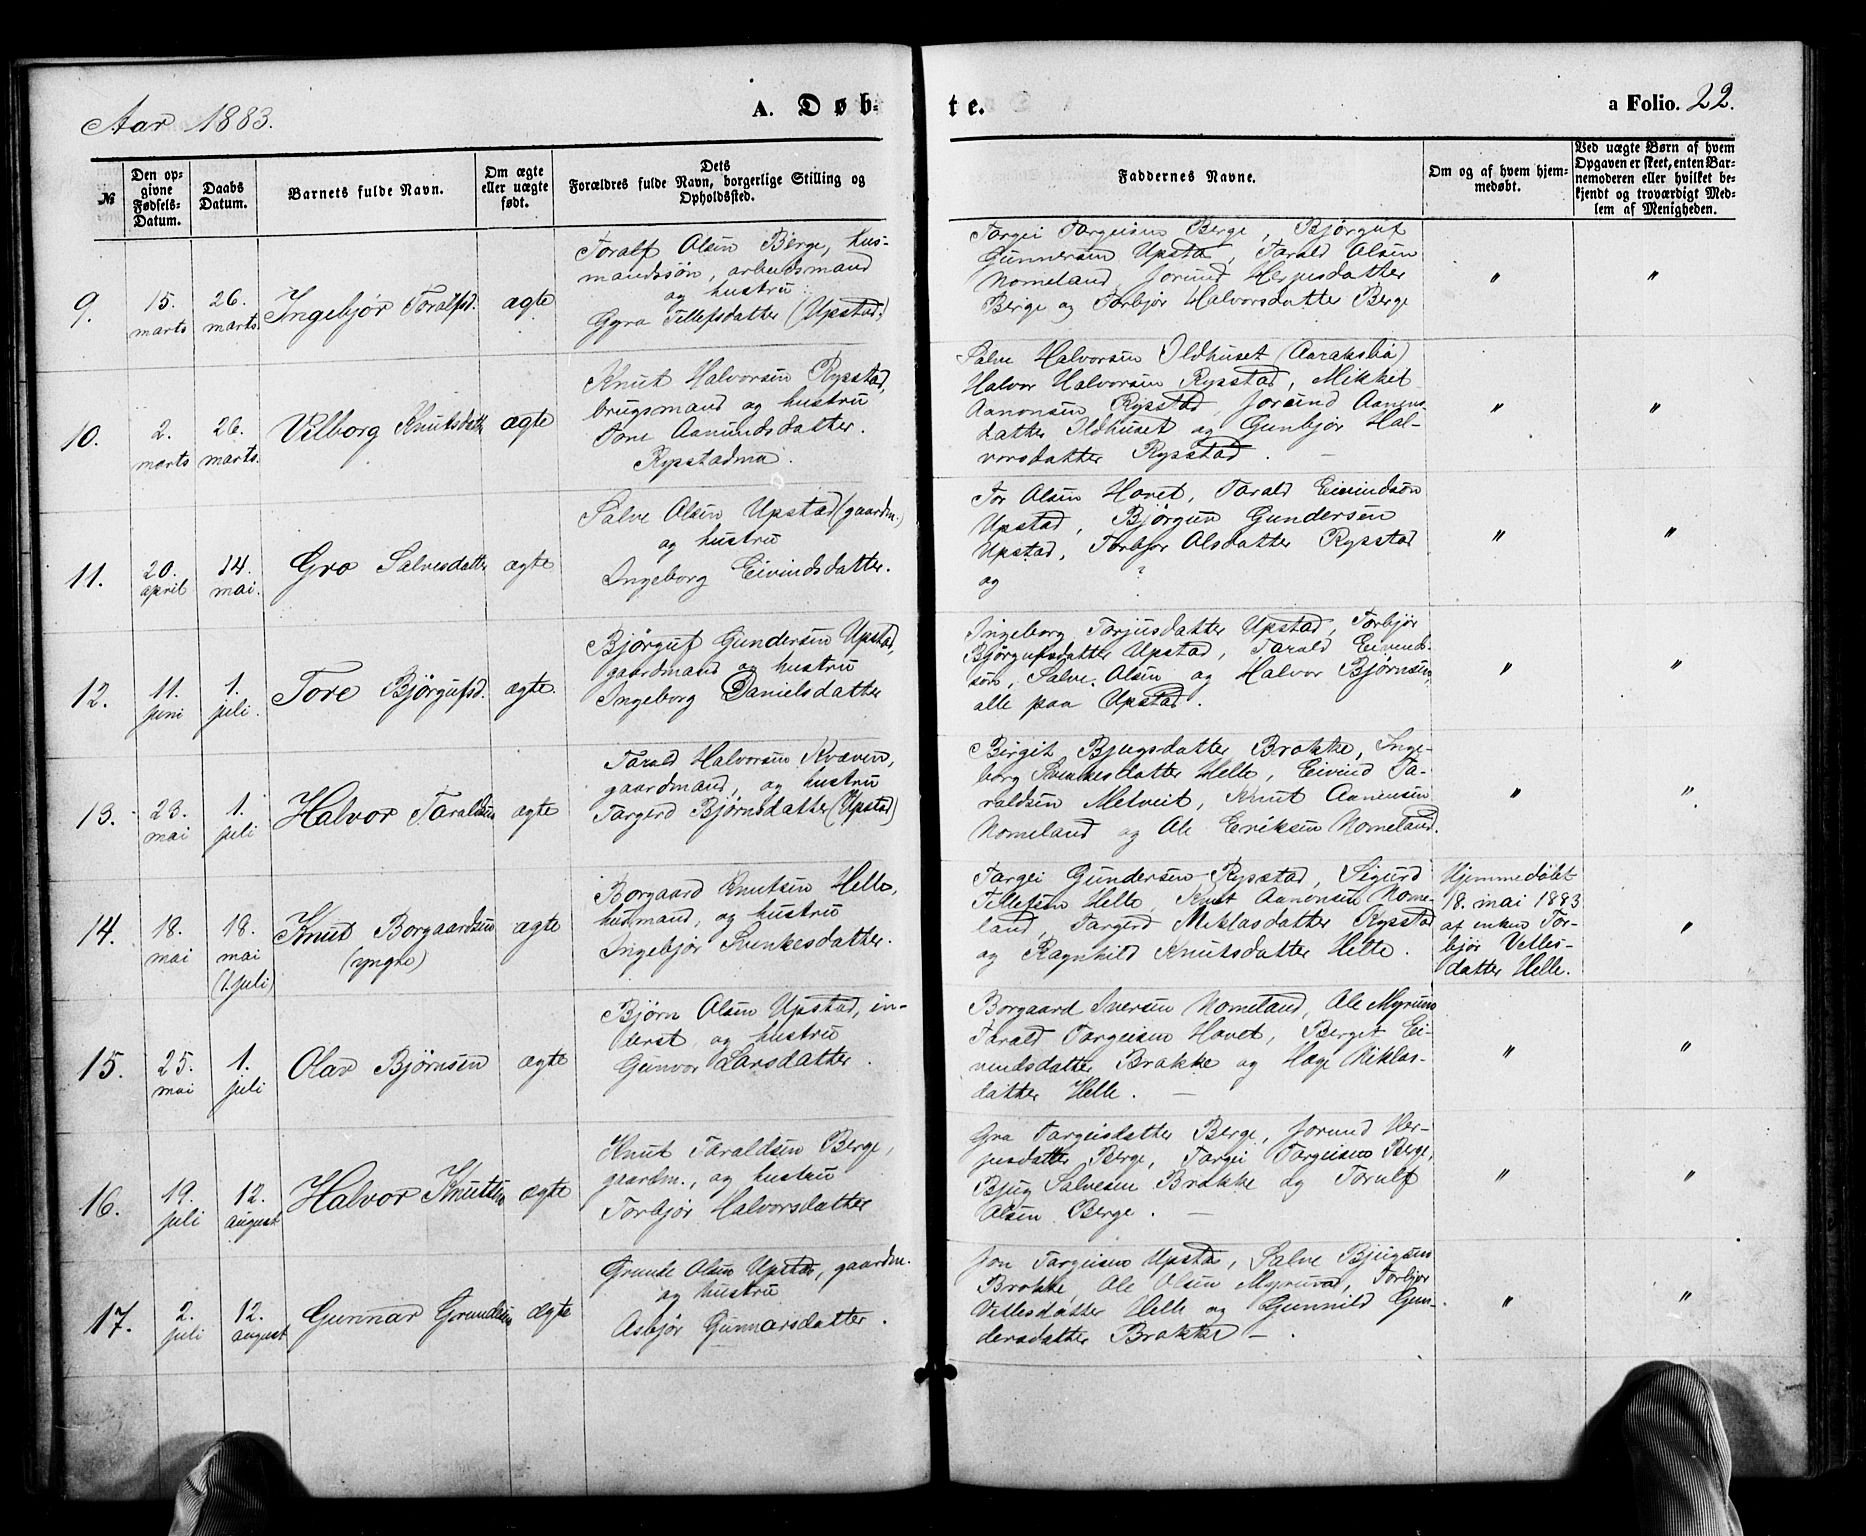 Aar 1883.
A. Døb-
te.
a Folio. 22.
№
Den op-
givne
Fødsels-
Datum.
Daabs
Datum.
Barnets fulde Navn.
Om ægte
eller uægte
født.
Dets
Forældres fulde Navn, borgerlige Stilling og
Opholdssted.
Faddernes Navne.
Om og af hvem hjem-
medøbt.
Ved uægte Børn af hvem
Opgaven er skeet, enten Bar-
nemoderen eller hvilket be-
kjendt og troværdigt Med-
lem af Menigheden.
9.
15.
marts
26.
marts.
Ingebjør Toralfsd.
ægte
Toralf Olsen Berge, hus-
mandssøn, arbeidsmand
og hustru
Gyro Tellefsdatter (Upstad.)
Targei Targeisen Berge, Bjørguf
Gunnersen Upstad, Tarald Olsen
Nomeland, Jorund Herjusdatter
Berge og Torbjør Halvorsdatter Berge
"
"
10.
2.
marts
26.
marts.
Vilborg Knutsdatt
ægte
Knut Halvorsen Rysstad,
brugsmand og hustru
Tone Aanundsdatter.
Rysstadmo.
Salve Halvorsen Ildhuset (Aarakslia)
Halvor Halvorsen Rysstad, Mikkel
Aanonsen Rysstad, Jorund Aanens-
datter Ildhuset og Gunbjør Hal-
vorsdatter Rysstad. —
"
"
11.
20.
april
14.
mai.
Gro Salvesdatter
ægte
Salve Olsen Upstad (gaardm.)
og hustru
Ingeborg Eivindsdatter.
Tor Olsen Hovet, Tarald Eivindsøn
Upstad, Bjørgun Gundersen
Upstad, Torbjør Olsdatter Rysstad
og ?
"
"
12.
11.
juni
1.
juli.
Tore Bjørgufsd.
ægte.
Bjørguf Gundersen Upstad,
gaardmand og hustru
Ingeborg Danielsdatter
Ingeborg Torjusdatter Upstad, Torbjør
Bjørgufsdatter Upstad, Tarald Eivinds-
søn, Salve Olsen og Halvor Bjørnsen,
alle paa Upstad.
"
"
13.
23.
mai
1.
juli
Halvor Taraldsen
ægte
Tarald Halvorsen Kvæven,
gaardmand, og hustru
Targerd Bjørnsdatter (Upstad)
Birgit Bjugsdatter Brokke, Inge-
borg Svenkesdatter Helle, Eivind Ta-
raldsen Metveit, Knut Aanensen
Nomeland og Ole Eriksen Nomeland.
"
"
14.
18.
mai
18.
mai
(1. juli)
Knut Borgaardsen
(yngre)
ægte
Borgaard Knutsen Helle,
husmand, og hustru
Ingebjør Svenkesdatter.
Targei Gundersen Rysstad, Sigurd
Tellefsen Helle, Knut Aanonsen Nome-
land, Targerd Miklasdatter Rysstad
og Ragnhild Knutsdatter Helle.
Hjemmedøbt
18. mai 1883
af enken Tor-
bjør Vetles-
datter Helle.
"
15.
25.
mai
1.
juli
Olav Bjørnsen
ægte
Bjørn Olsen Upstad, in-
derst og hustru
Gunvor Larsdatter.
Borgaard Iversen Nomeland, Ole Myrum
Tarald Torgeisen Hovet, Berget Ei-
vindsdatter Brokke og Hæge Niklas-
datter Helle. —
"
"
16.
19.
juli
12.
august
Halvor Knutsen
ægte
Knut Taraldsen Berge,
gaardm., og hustru
Torbjør Halvorsdatter
Gro Targeisdatter Berge, Jorund Her-
jusdatter Berge, Targei Torgeisen Berge,
Bjug Salvesen Brokke og Toralf
Olsen Berge. —
"
"
17.
2.
juli
12.
august
Gunnar Grundesen
ægte
Grunde Olsen Upstad, gaardm.
og hustru
Asbjør Gunnarsdatter.
Jon Targeisen Upstad, Salve Bjugsen
Brokke, Ole Olsen Myrum, Torbjør
Vetlesdatter Helle og Gunnild Gun-
dersdatter Brokke —.
"
"